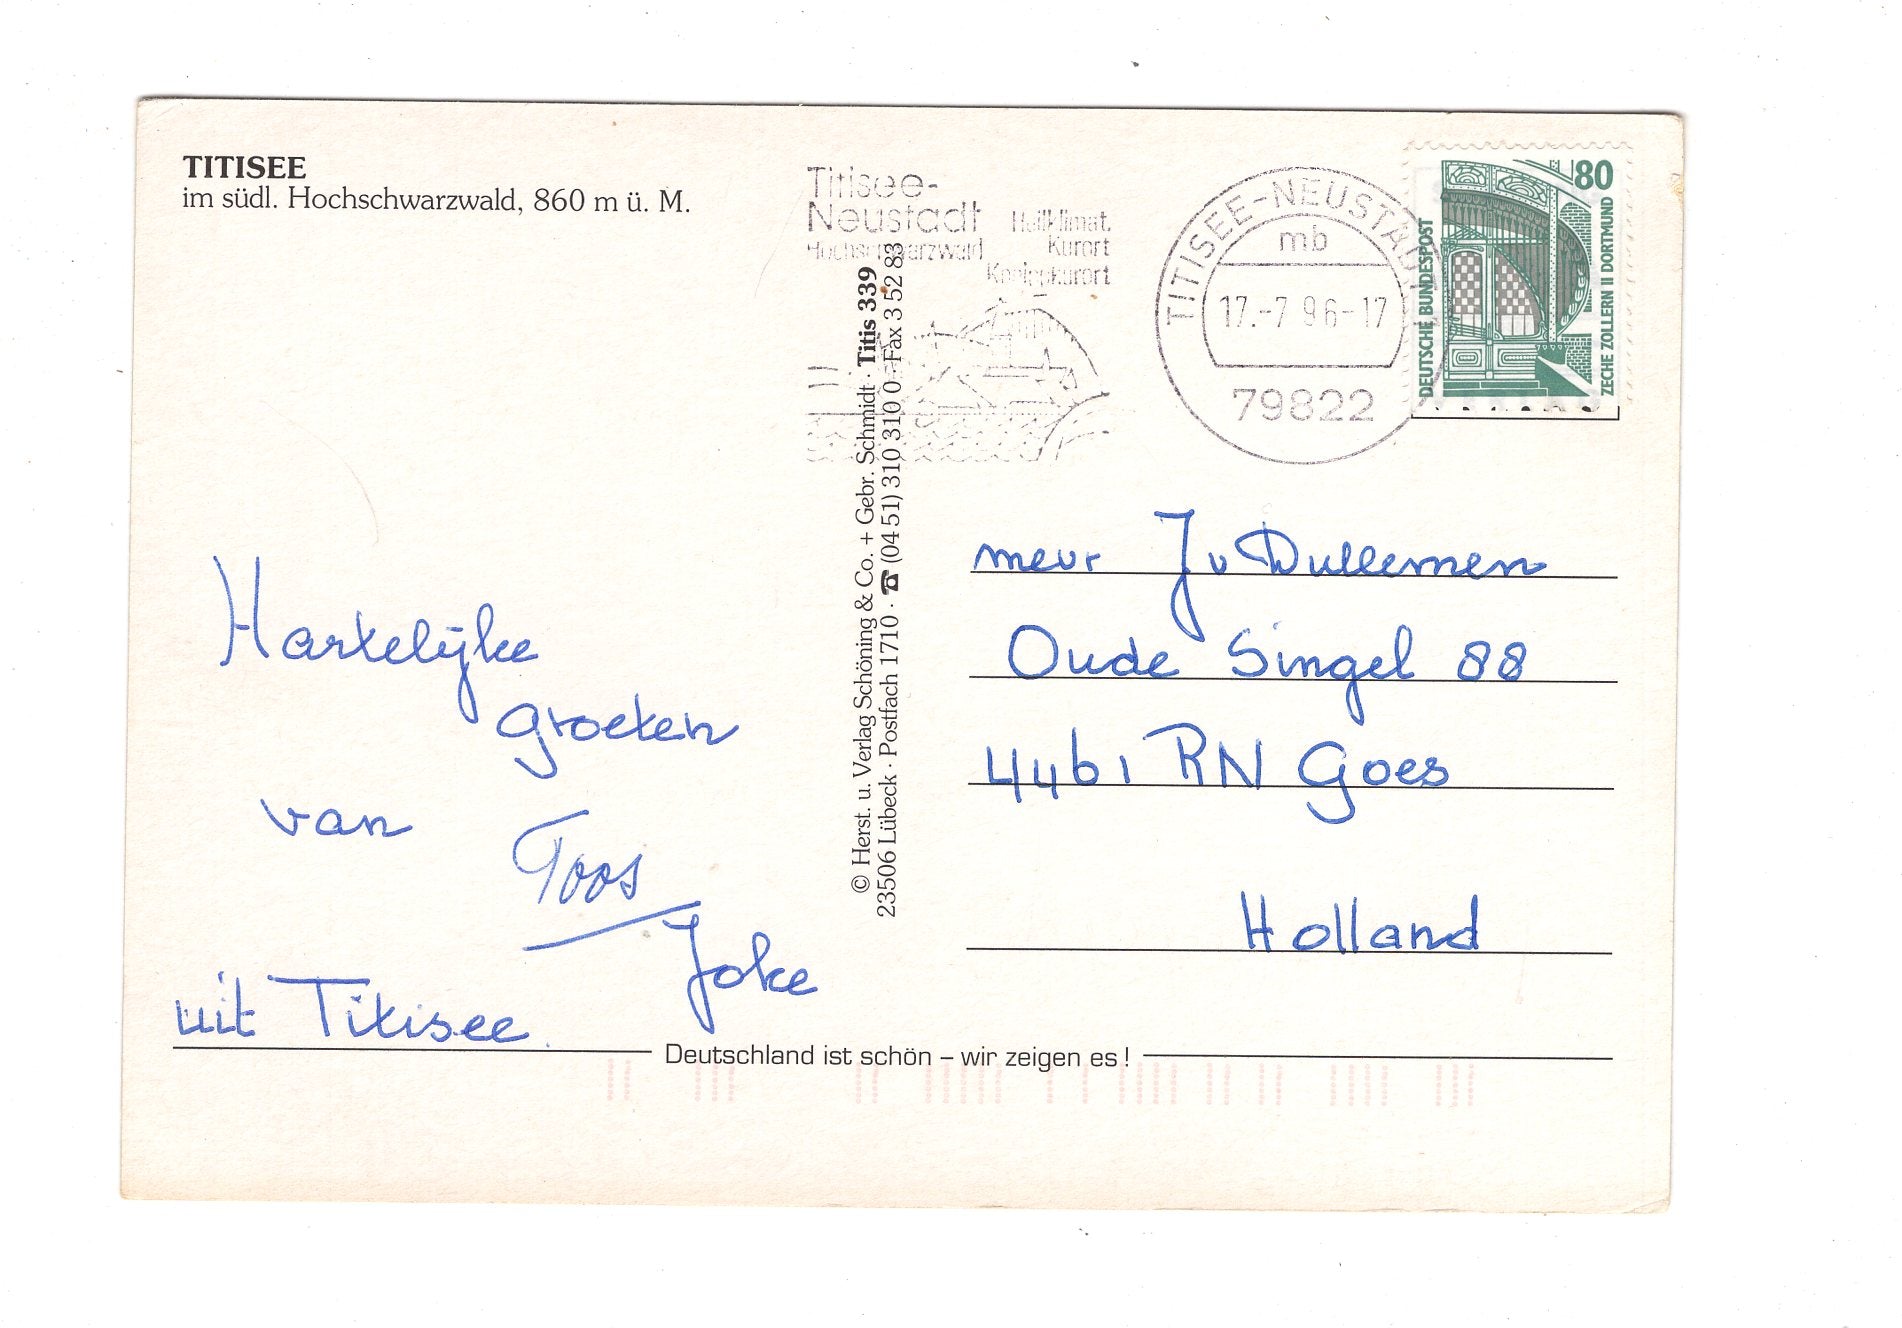 TITISEE
im südl. Hochschwarzwald, 860 m ü. M.
Titisee-
Neustadt
Hochschwarzwald
Heilklimat.
Kurort
Kneippkurort
TITISEE-NEUSTADT
mb
17.-7 96-17
79822
80
DEUTSCHE BUNDESPOST
ZECHE ZOLLERN II DORTMUND
© Herst. u. Verlag Schöning & Co. + Gebr. Schmidt · Titis 339
23506 Lübeck · Postfach 1710 · ☎ (04 51) 310 310 0 - Fax 3 52 83
Hartelijke
groeten
van
Toos
Joke
uit Titisee.
mevr J v Dullemen
Oude Singel 88
4461 RN Goes
Holland
Deutschland ist schön – wir zeigen es !